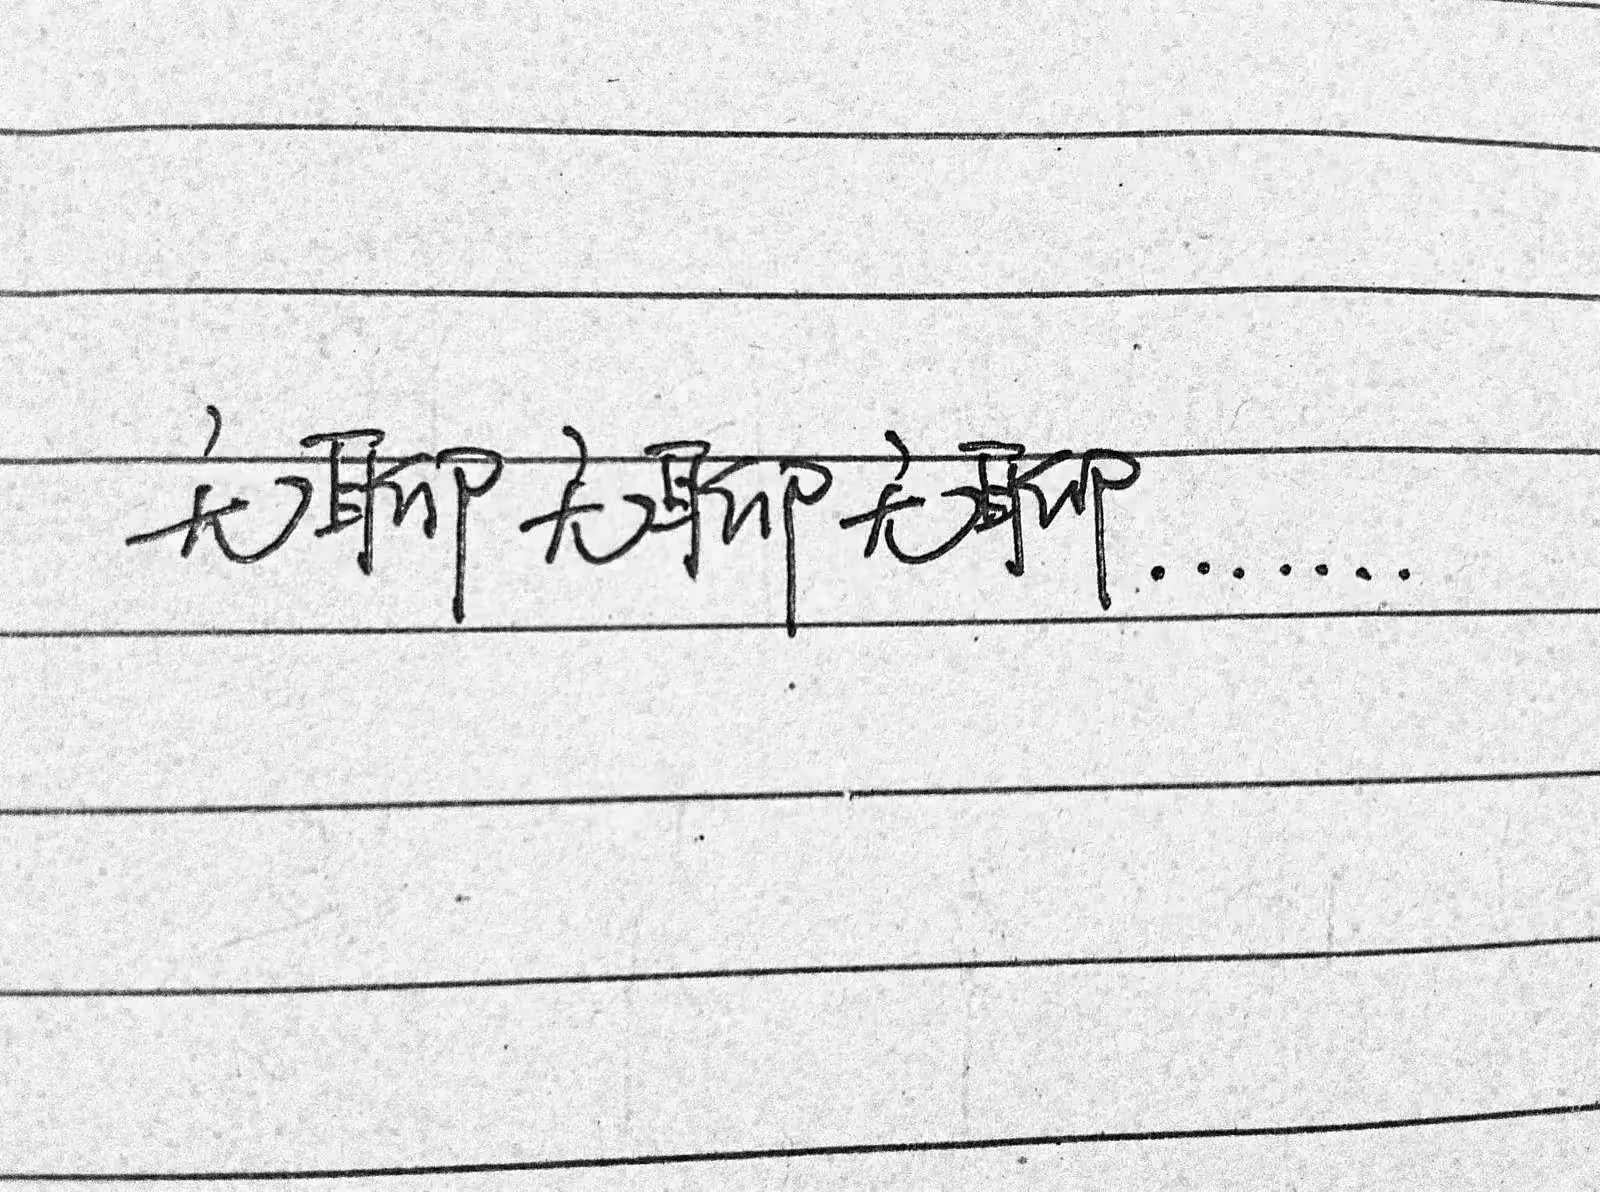 无聊无聊无聊.......